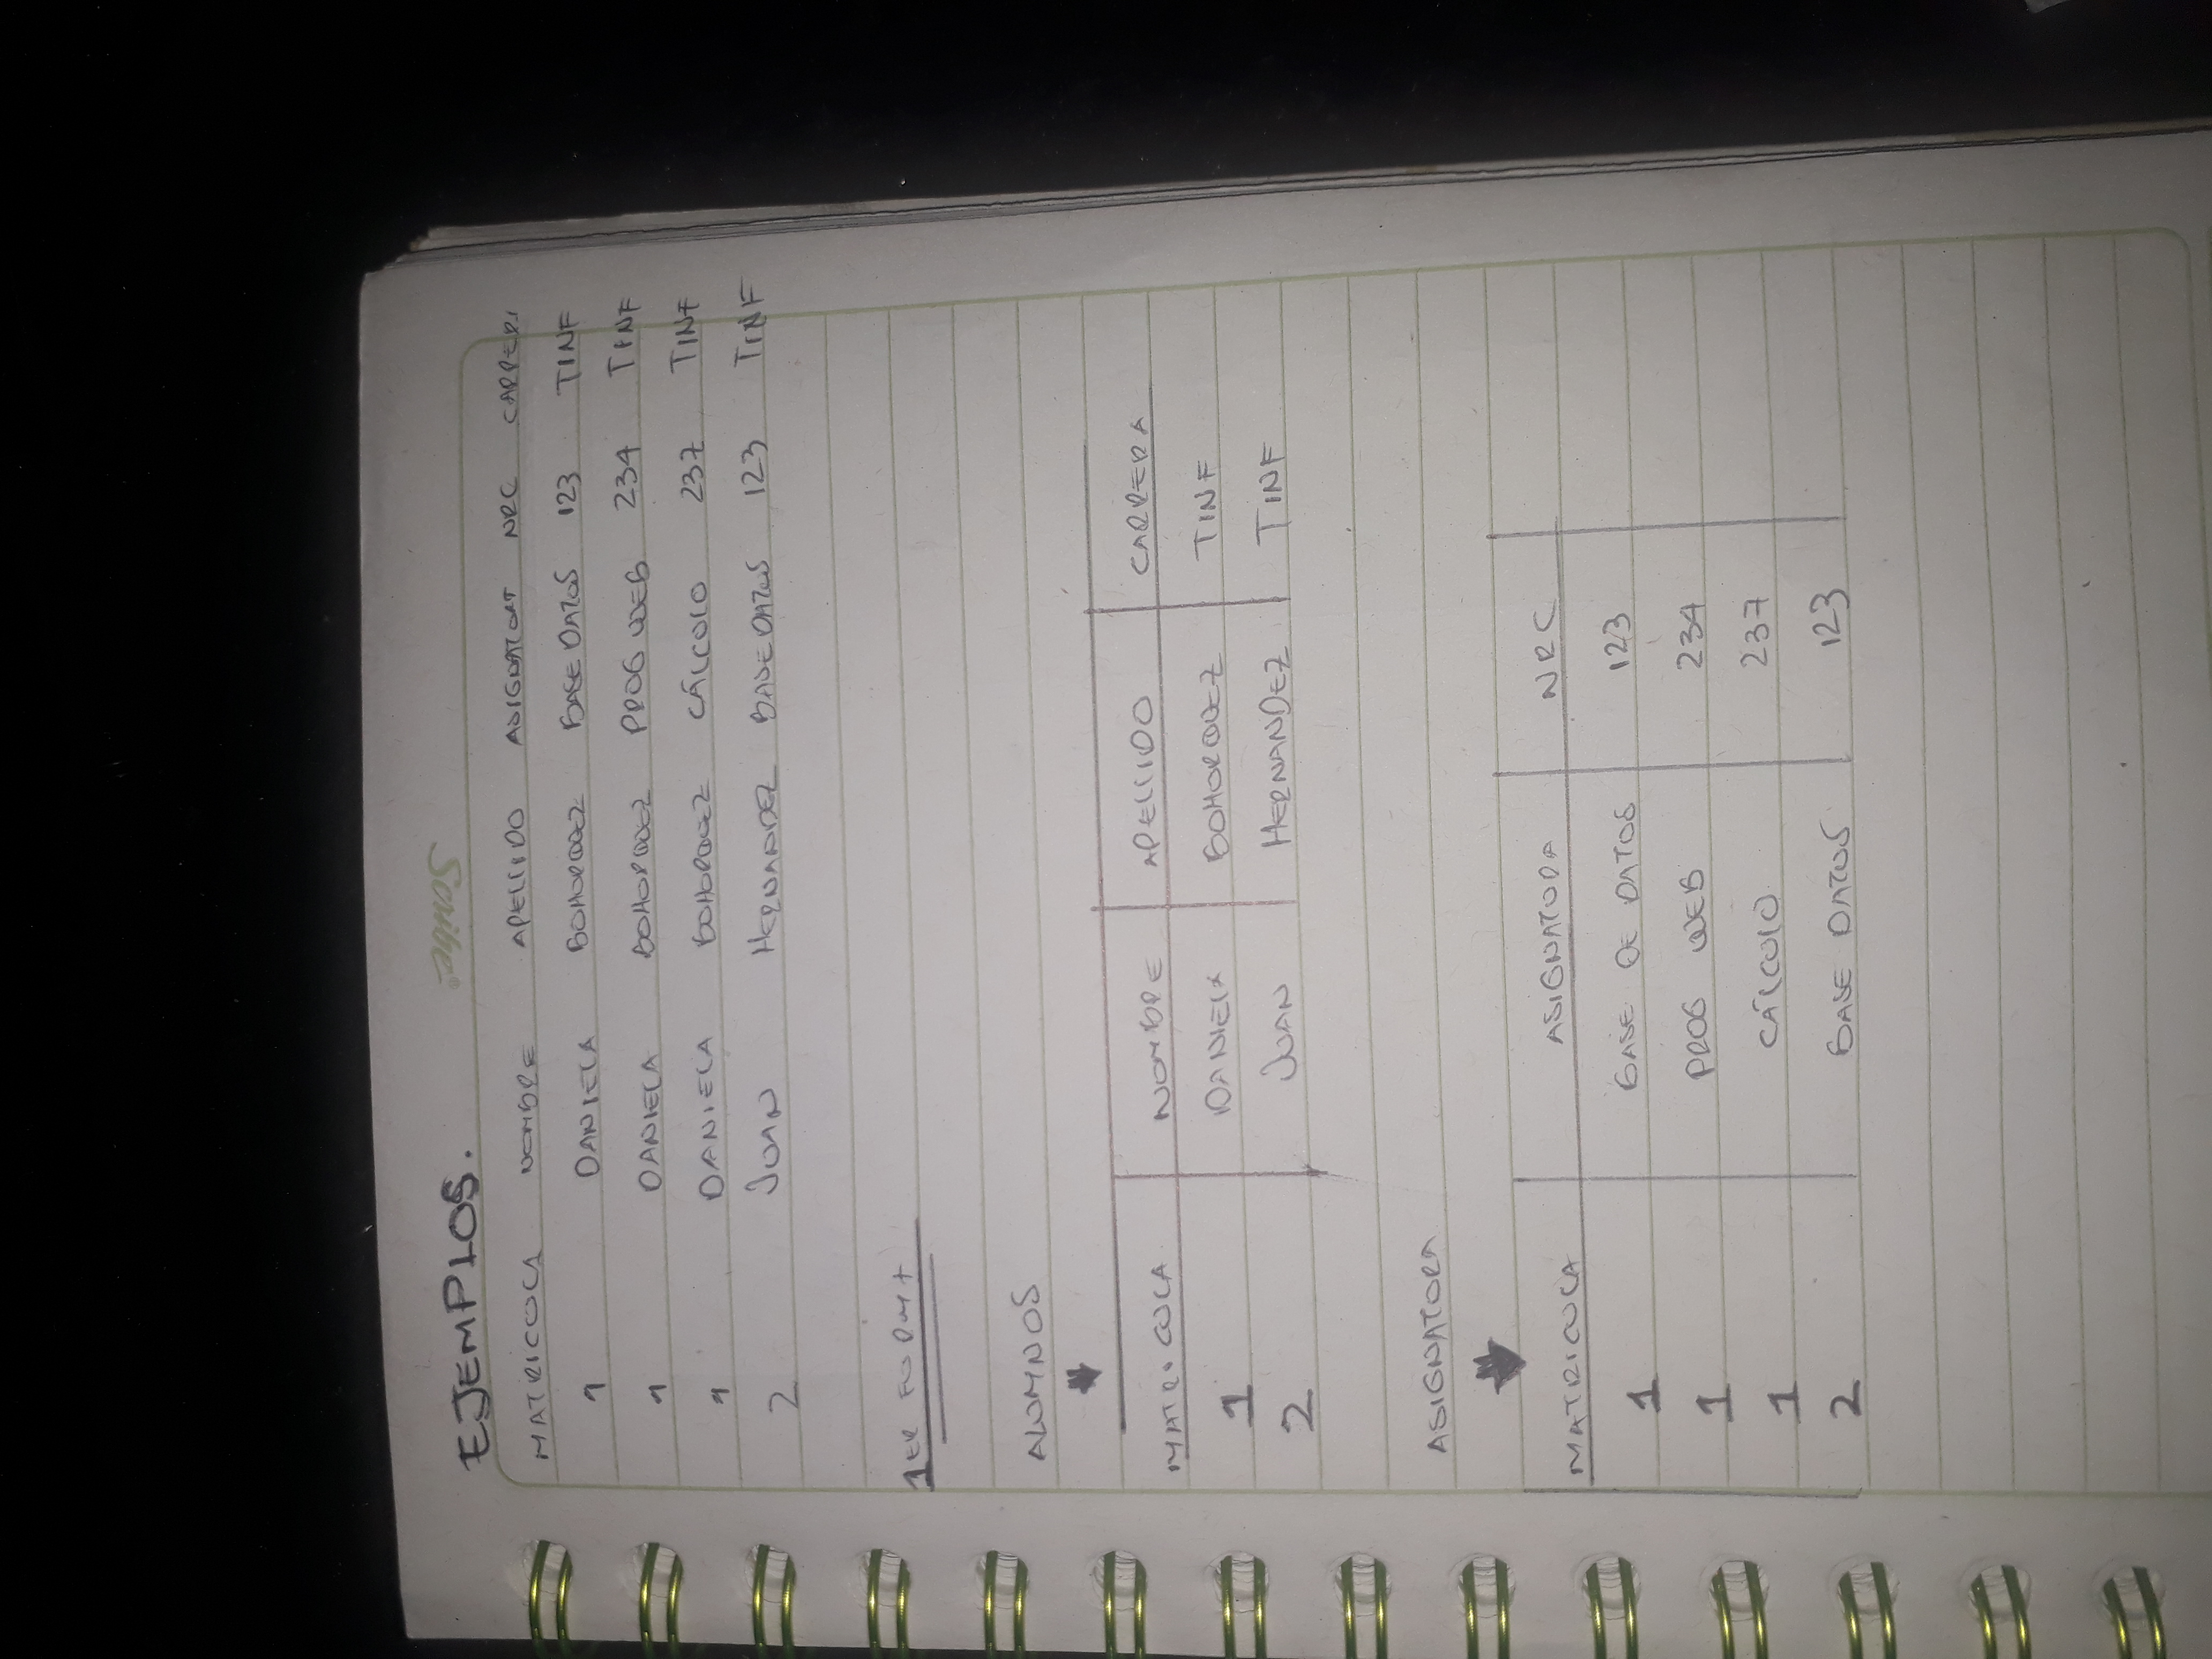 EJEMPLOS.
Scribe
MATRICULA NOMBRE APELLIDO ASIGNATURA NRC CARRERA
1 DANIELA BOHORQUEZ BASE DATOS 123 TINF
1 DANIELA BOHORQUEZ PROG WEB 234 TINF
1 DANIELA BOHORQUEZ CÁLCULO 237 TINF
2 JUAN HERNANDEZ BASE DATOS 123 TINF
1ER FORMA
ALUMNOS
MATRICULA NOMBRE APELLIDO CARRERA
1 DANIELA BOHORQUEZ TINF
2 JUAN HERNANDEZ TINF
ASIGNATURA
MATRICULA ASIGNATURA NRC
1 BASE DE DATOS 123
1 PROG WEB 234
1 CÁLCULO 237
2 BASE DATOS 123